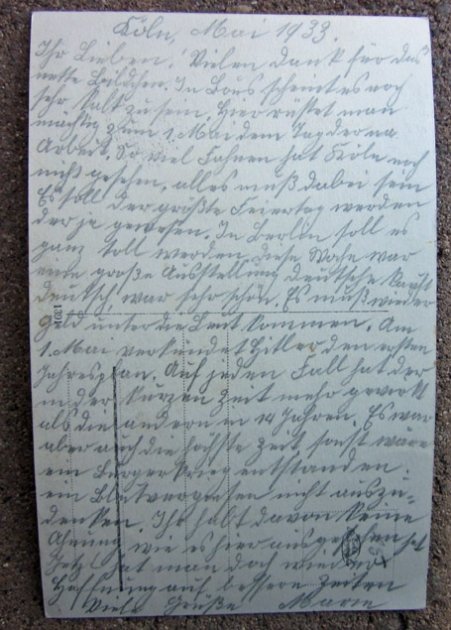 Köln, Mai 1933.
Ihr Lieben! Vielen Dank für das
nette Bildchen. In Bous scheint es noch
sehr kalt zu sein. Hier rüstet man
mächtig zum 1. Mai dem Tag der na
Arbeit. So viel Fahnen hat Köln noch
nicht gesehen, alles muß dabei sein
Es soll der größte Feiertag werden
der je gewesen. In Berlin soll es
ganz toll werden. Diese Woche war
eine große Ausstellung deutsche
deutsch, war sehr schön. Es muß wieder
Geld unter die Leut kommen. Am
1. Mai verkündet Hitler den ersten
Jahresplan. Auf jeden Fall hat der
in der kurzen Zeit mehr gewirkt
als die andern in 14 Jahren. Es war
aber auch die höchste Zeit sonst wäre
ein Bürgerkrieg entstanden.
ein Blutvergießen nicht auszu-
denken. Ihr habt davon keine
Ahnung wie es hier ausgesehen hat
Jetzt hat man doch wieder
Hoffnung auf bessere Zeiten
Viele Grüße Marie